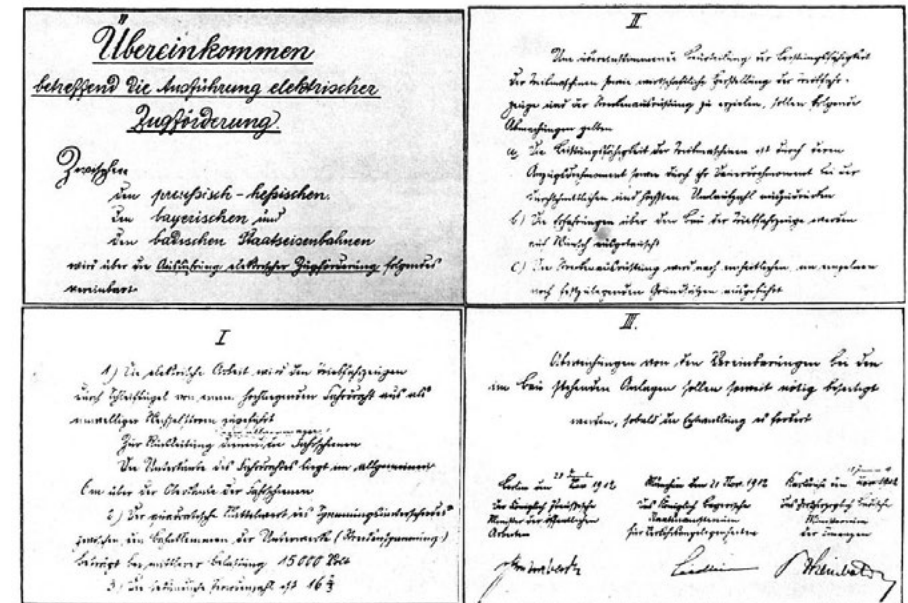 Übereinkommen
betreffend die Ausführung elektrischer
Zugförderung.
Zwischen
den preußisch-hessischen,
den bayerischen und
den badischen Staatseisenbahnen
wird über die Ausführung elektrischer Zugförderung folgendes
vereinbart
I
1.) Die elektrische Arbeit wird den Triebfahrzeugen
durch Schleifbügel von einem Fahrdraht aus als
einwelliger Wechselstrom zugeführt
Zur Rückleitung dienen die Fahrschienen
Die Unterkante des Fahrdrahtes liegt im allgemeinen
6m über der Oberkante der Fahrschienen
2.) Der quadratische Mittelwert des Spannungsunterschiedes
zwischen den der Unterwerke (Streckenspannung)
beträgt bei mittlerer Belastung 15000 Volt
3.) Die sekundliche ist 16 2/3
II
Um übereinstimmende Beurteilung der Leistungsfähigkeit
der sowie wirtschaftliche Herstellung der Triebfahr-
zeuge und der Streckenausrüstung zu erzielen, sollen folgende
Abmachungen gelten
a) Die Leistungsfähigkeit der ist durch deren
Anzugsdrehmoment sowie durch ihr Dauerdrehmoment bei der
durchschnittlichen und höchsten Umlaufzahl auszudrücken
b) Die Erfahrungen über den Bau der Triebfahrzeuge werden
auf Wunsch ausgetauscht
c) Die Streckenausrüstung wird nach einheitlichen, im einzelnen
noch festzulegenden Grundsätzen ausgeführt
III.
Abweichungen von den Vereinbarungen bei den
im Bau stehenden Anlagen sollen soweit nötig beseitigt
werden, sobald die Entwicklung es fordert
Berlin den 28 1912
Der Königlich Preußische
Minister der öffentlichen
Arbeiten
München den 21 Nov. 1912
Das Königlich Bayerische
Staatsministerium
für Verkehrsangelegenheiten
Karlsruhe den 1912
Das Großherzoglich Badische
Ministerium
der Finanzen